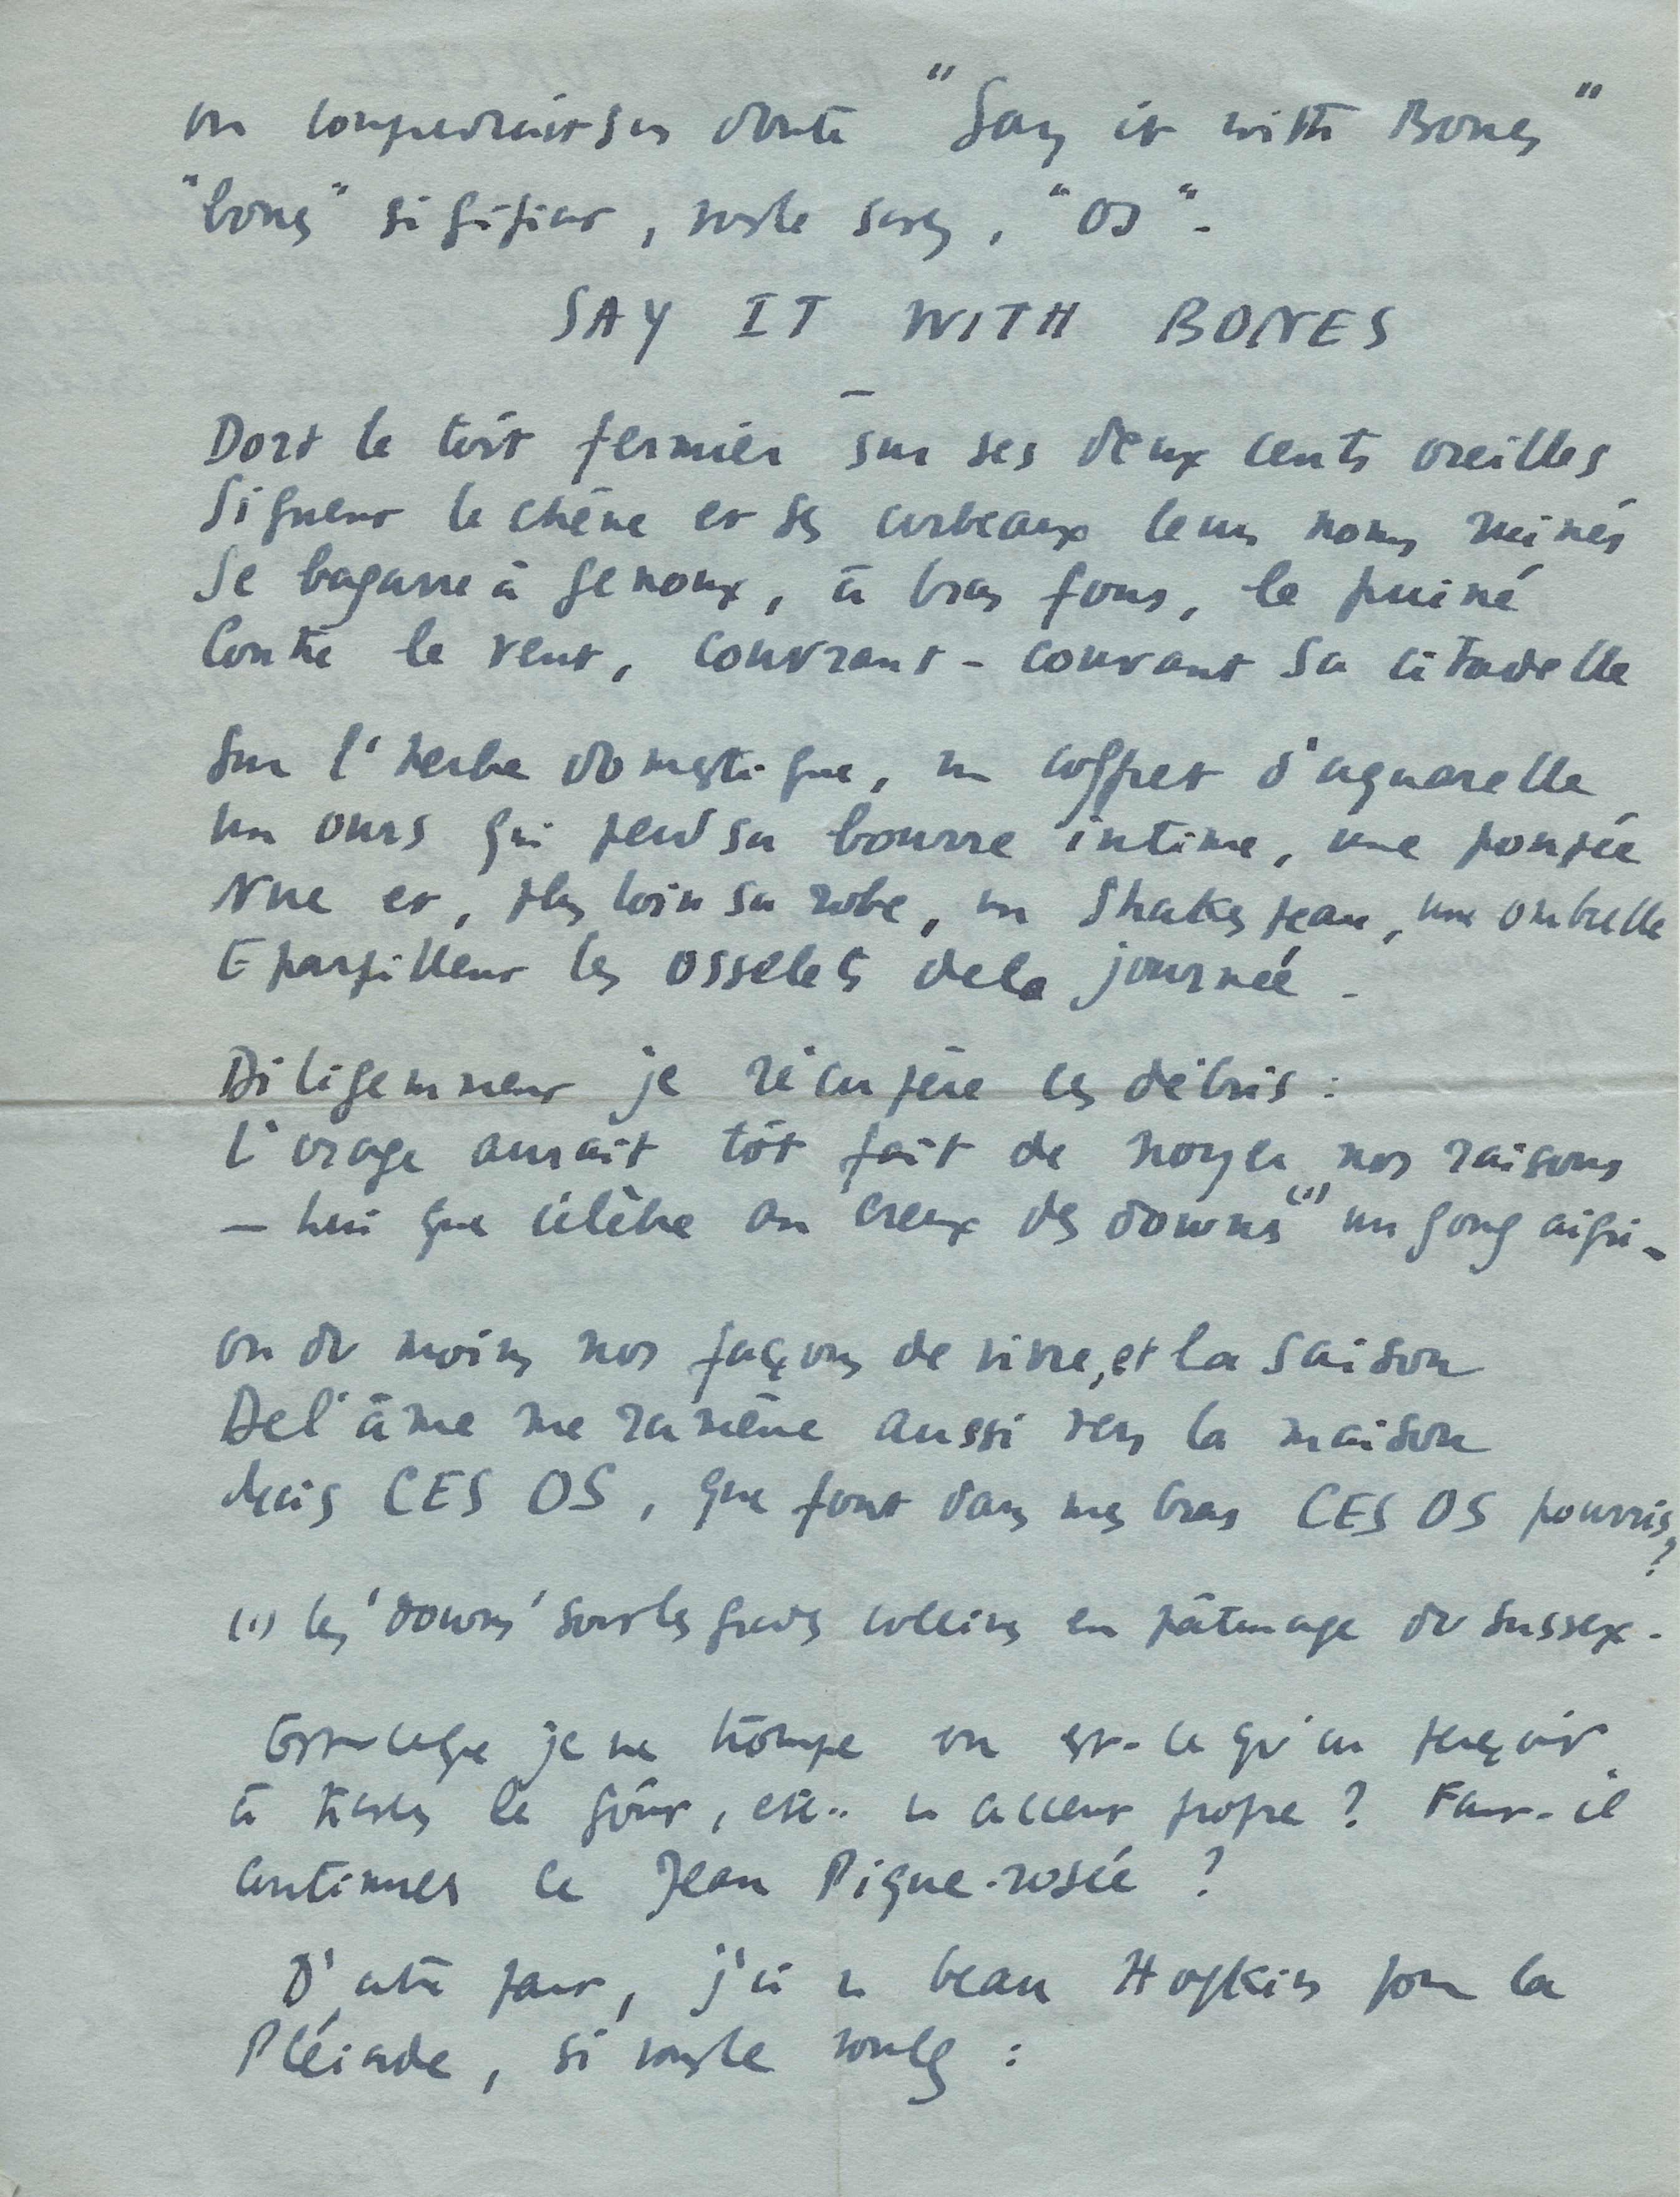 on comprendrait sans doute "Say it with Bones"
"bones" signifiant, vous le savez, "os".
SAY IT WITH BONES
Dort le toit fermier sur ses deux cents oreilles
Signent le chêne et ses corbeaux leurs noms ruinés
Se bagarre à genoux, à bras fous, le puiné
Contre le vent, couvrant-couvant sa citadelle
Sur l'herbe domestique, un coffret d'aquarelle
Un ours qui perd sa bourre intime, une poupée
Nue et, plus loin sa robe, un Shakespeare, une ombrelle
Eparpillent les osselets de la journée.
Diligemment je récupère ces débris :
L'orage aurait tôt fait de noyer nos raisons
— Lui que célèbre au creux des downs (1) un gong aigri —
ou du moins nos façons de vivre, et la saison
De l'âme me ramène aussi vers la maison
Mais CES OS, que font dans mes bras CES OS pourris ?
(1) les 'downs' sont les grandes collines en pâturage du Sussex.
Est-ce que je me trompe ou est-ce qu'on perçoit
à travers le goût, etc.. un accent propre ? Faut-il
continuer ce Jean Pique-rosée ?
D'autre part, j'ai un beau Hopkins pour la
Pléiade, si vous le voulez :